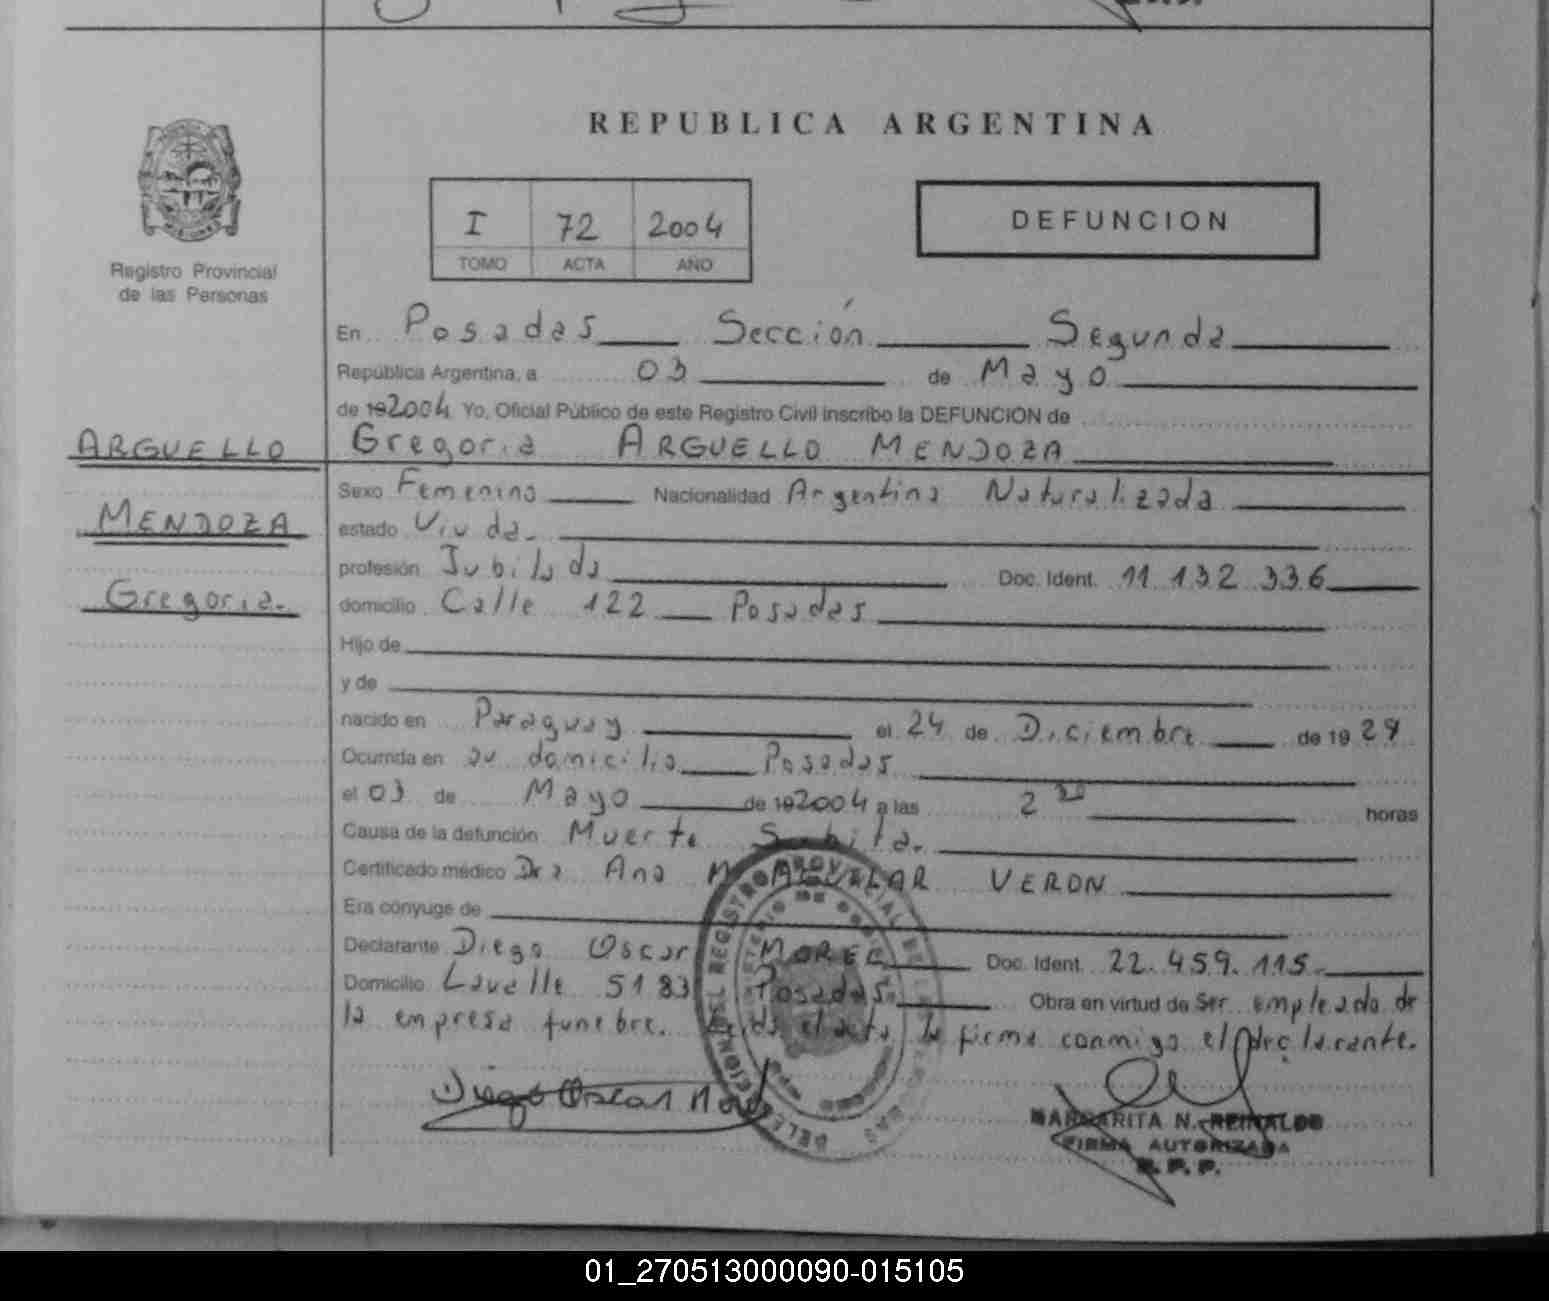 REPUBLICA ARGENTINA
I 72 2004
TOMO ACTA AÑO
DEFUNCION
Registro Provincial
de las Personas
En Posadas Sección Segunda
República Argentina, a 03 de Mayo
de 192004 Yo, Oficial Público de este Registro Civil inscribo la DEFUNCION de
ARGUELLO
MENDOZA
Gregoria.
Gregoria ARGUELLO MENDOZA
Sexo Femenino Nacionalidad Argentina Naturalizada
estado Viuda.
profesión Jubilada Doc. Ident. 11.132.336
domicilio Calle 122 Posadas
Hijo de
y de
nacido en Paraguay el 24 de Diciembre de 19
Ocurrida en su domicilio Posadas
el 03 de Mayo de 192004 a las 2 horas
Causa de la defunción Muerte Subita.
Certificado médico Dra Ana M. VERON
Era cónyuge de
Declarante Diego Oscar Doc. Ident. 22.459.115.
Domicilio Lavalle 5183 Posadas. Obra en virtud de Ser empleado de
la empresa funebre. el acta la firma conmigo el declarante.
Diego Oscar
MARGARITA N. REINALDO
FIRMA AUTORIZADA
R. P. P.
01_270513000090-015105